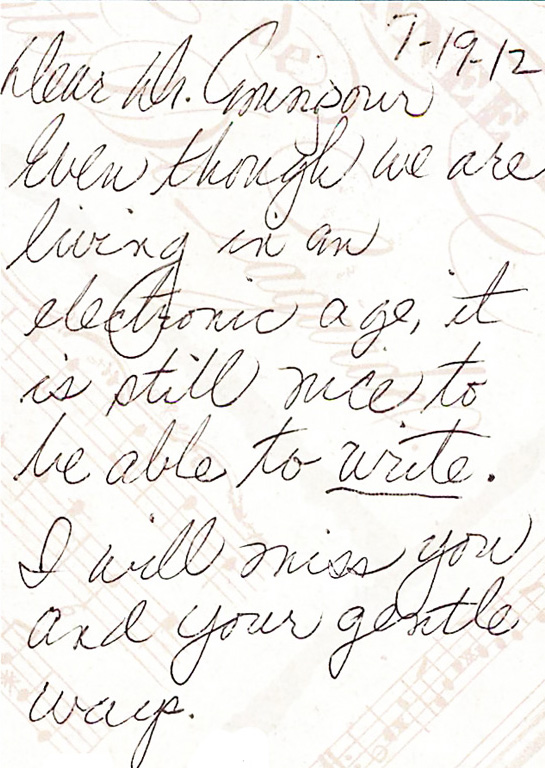 7-19-12
Dear Dr.
Even though we are
living in an
electronic age, it
is still nice to
be able to write.
I will miss you
and your gentle
ways.